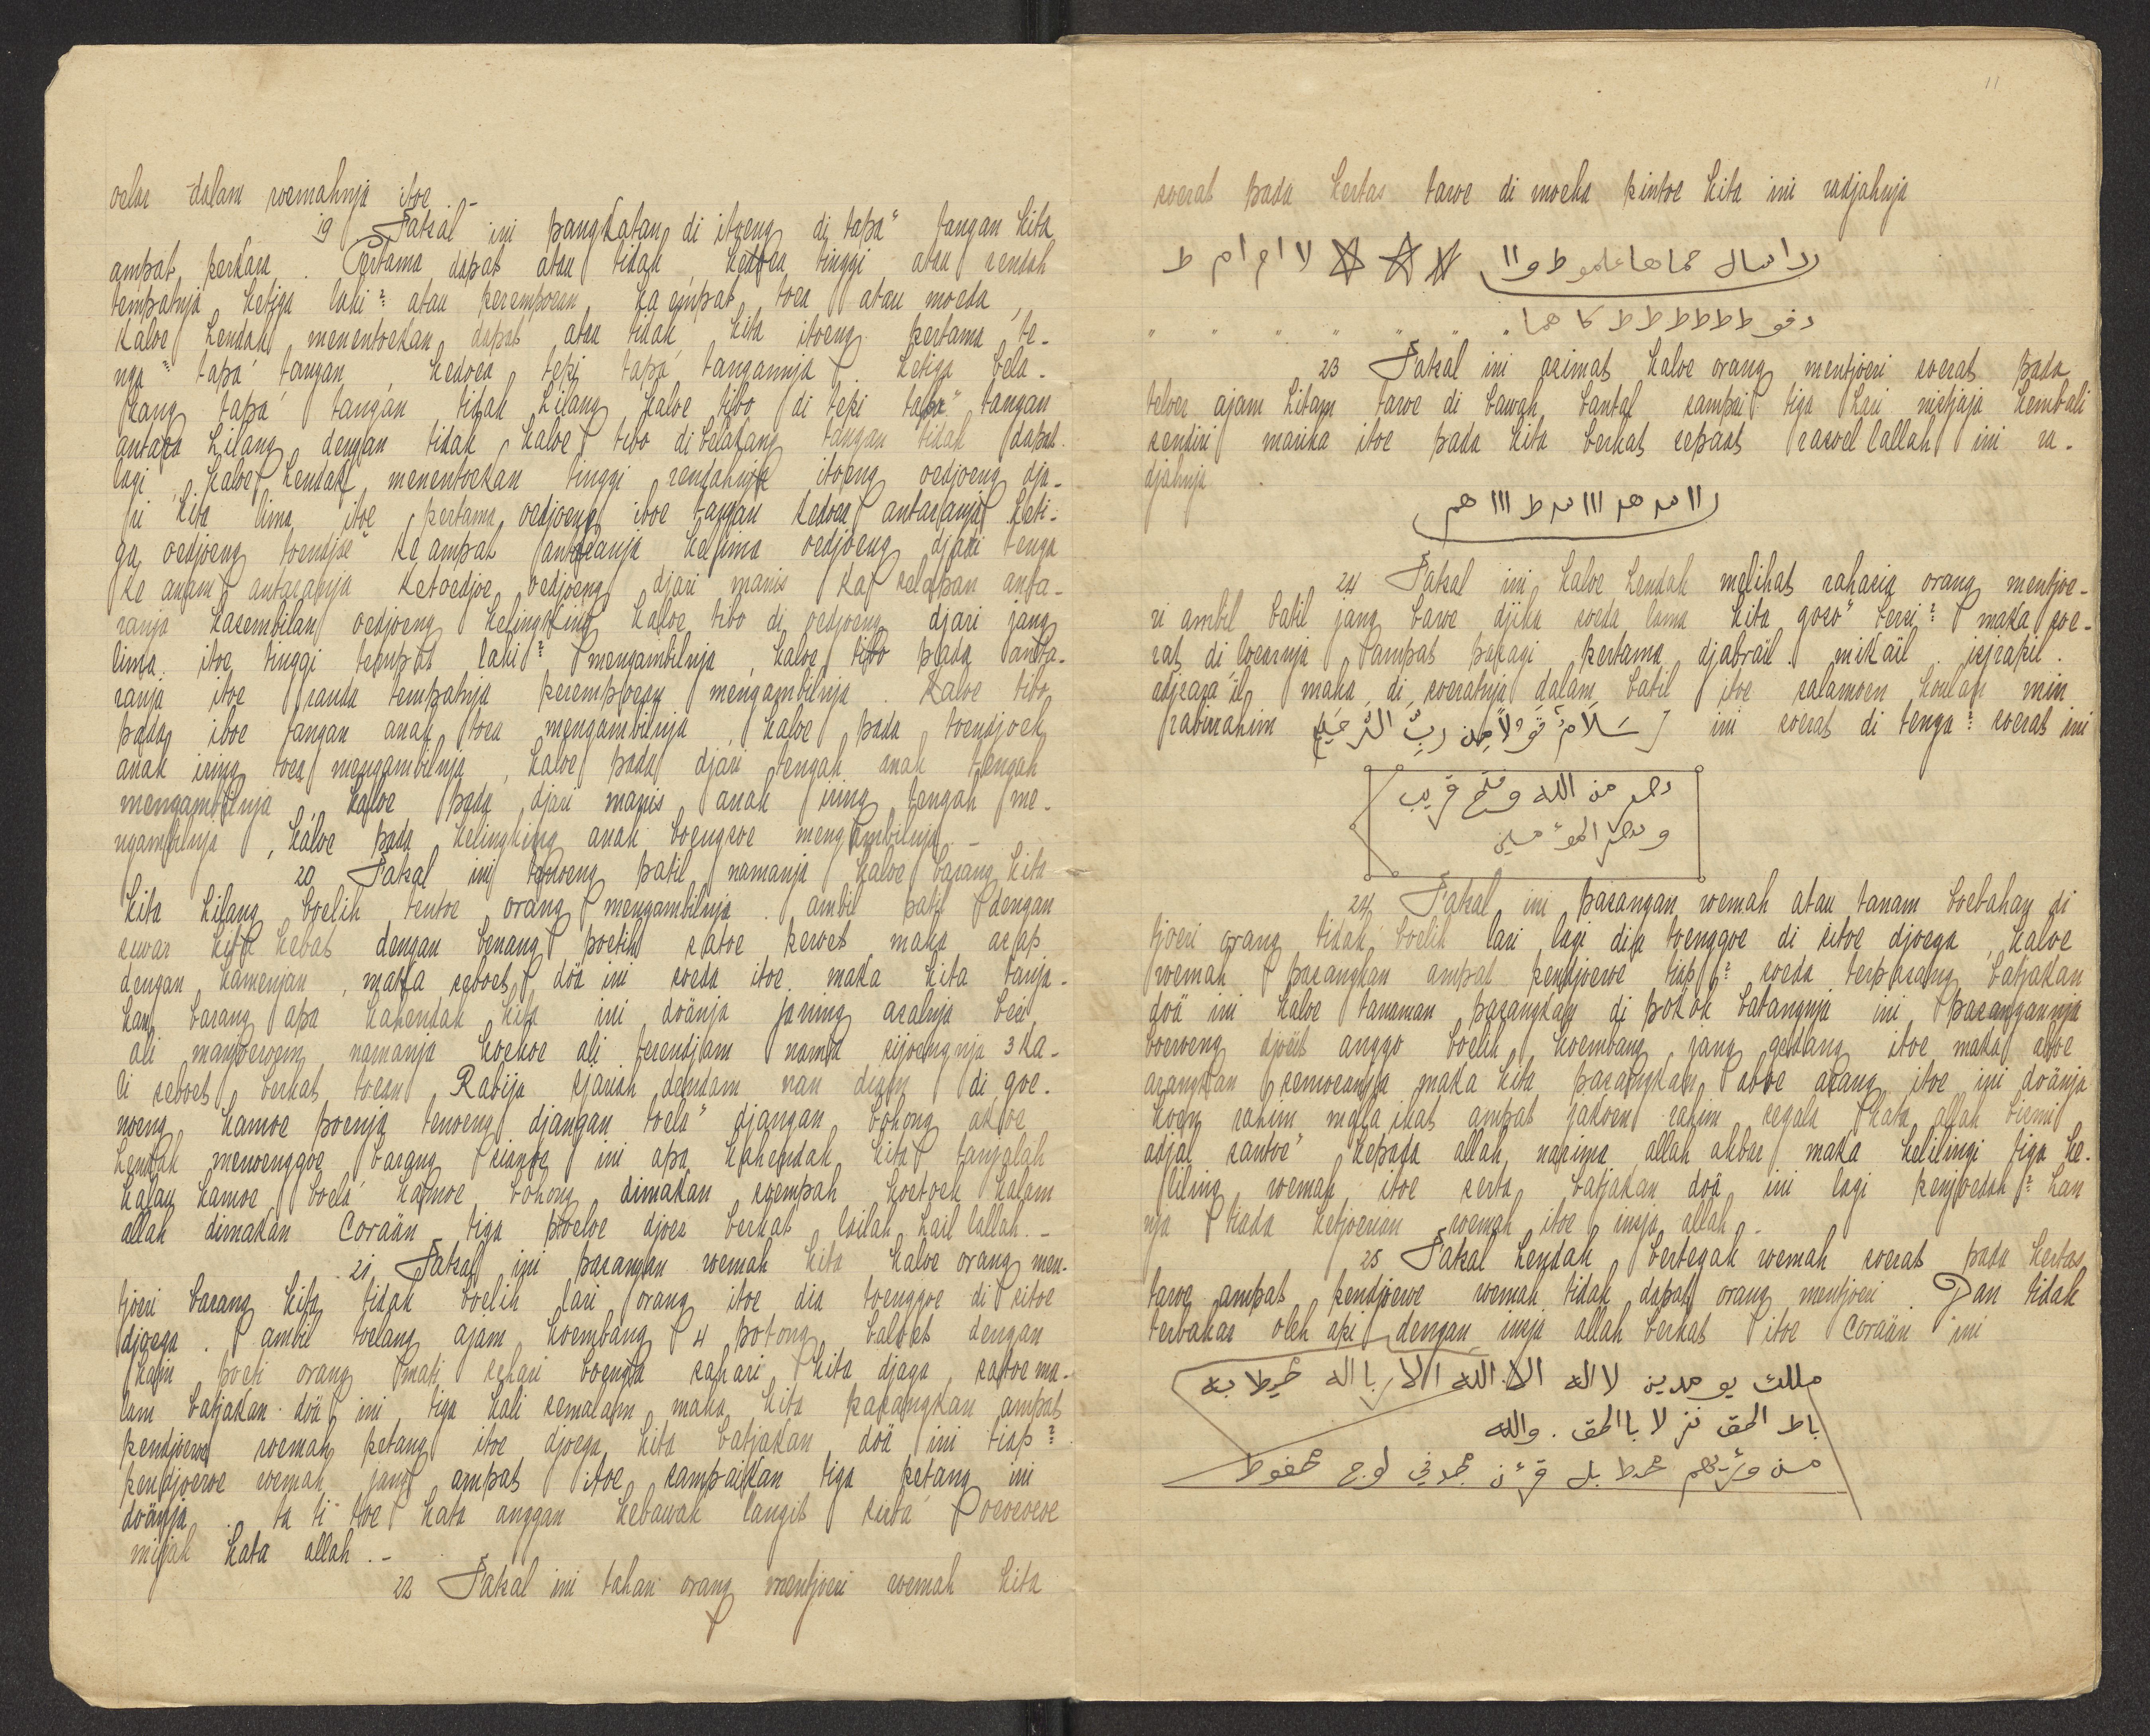 oelar dalam roemahnja itoe .-
19 Fatsal ini pangkatan di itoeng di tapa" tangan kita
ampat perkara . Pertama dapat atau tidak , kedoea tinggi atau rendah
tempatnja , ketiga laki² atau perempoean , ka empat toea atau moeda ,
kaloe hendak menentoekan dapat atau tidak kita itoeng pertama te-
nga" tapa' tangan , kedoea tepi tapa' tangannja . ketiga bela-
kang tapa' tangan , tidak hilang kaloe tibo di tepi tapa" tangan
antara hilang dengan tidak , kaloe tibo dibelakang tangan tidak dapat
lagi . kaloe hendak menentoekan tinggi rendahnja itoeng oedjoeng dja-
ri kita lima itoe , pertama oedjoeng iboe tangan kedoea antaranja keti-
ga oedjoeng toendjoe" ke ampat antaranja kelima oedjoeng djari tenga
ke anam antaranja ketoedjoe oedjoeng djari manis ka selapan anta-
ranja kasembilan oedjoeng kelingking kaloe tibo di oedjoeng djari jang
lima itoe tinggi tempat laki² mengambilnja , kaloe tibo pada anta-
ranja itoe randa tempatnja perempoean mengambilnja . kaloe tibo
pada iboe tangan anak toea mengambilnja , kaloe pada toendjoek
anak iring toea mengambilnja , kaloe pada djari tengah anak tengah
mengambilnja , kaloe pada djari manis anak iring tengah me-
ngambilnja , kaloe pada kelingking anak boengsoe mengambilnja .-
20 Fatsal ini tenoeng patil namanja kaloe barang kita
kita hilang boelih tentoe orang mengambilnja . ambil patil dengan
kita kebat dengan benang poetih satoe peroet maka asap
dengan kamenjan , maka seboet doä ini soeda itoe maka kita tanja-
kan barang apa kahendak kita ini doänja asalnja besi
ali namanja koekoe ali terendjam nama sijoengnja 3 ka-
li seboet berkat toean Rabija sjariah dendam nan diam di goe-
noeng kamoe poenja tenoeng djangan toela" djangan bohong akoe
hendak menoenggoe barang sianoe ini apa kahendak kita tanjalah
kalau kamoe boela' kamoe bohong dimakan soempah koetoek kalam
allah dimakan Coraän tiga poeloe djoea berkat lailah hail lallah .-
21 Fatsal ini pasangan roemah kita kaloe orang men-
tjoeri barang kita tidak boelih lari orang itoe dia toenggoe di sitoe
djoega . ambil toelang ajam koembang 4 potong baloet dengan
kain poeti orang mati sehari boenga sahari kita djaga satoe ma-
lam batjakan doä ini tiga kali semalam maka kita pasangkan ampat
pendjoeroe roemah petang itoe djoega kita batjakan doä ini tiap²
pendjoeroe roemah jang ampat itoe sampaikan tiga petang ini
doänja . ta ti toe kata anggan kebawah langit
kata allah .-
22 Fatsal ini tahan orang mentjoeri roemah kita
soerat pada kertas taroe di moeka pintoe kita ini radjahnja
23 Fatsal ini asimat kaloe orang mentjoeri soerat pada
teloer ajam hitam taroe di bawah bantal sampai tiga hari nistjaja kembali
sendiri marika itoe pada kita berkat sepaat rasoel lallah ini ra-
djahnja .
24 Fatsal ini kaloe hendak melihat rahasia orang mentjoe-
ri ambil batil jang baroe djika soeda lama kita goso" bersi² maka soe-
rat di loearnja ampat paragi pertama djabraïl . mikaïl . isjrapil .
edjeara'il maka di soeratnja dalam batil itoe salamoen koulan min
rabirrahim [ سَلَامٌ قَوْلًا مِن رَبِّ الرَّحِيْمِ ] ini soerat di tenga² soerat ini
نصر من الله وفتح قريب
وبصر المؤمنين
24 Fatsal ini pasangan roemah atau tanam boetahan di
tjoeri orang tidak boelih lari lagi dia toenggoe di sitoe djoega , kaloe
roemah pasangkan ampat pendjoeroe tiap² soeda terpasang batjakan
doä ini kaloe tanaman pasangkan di pokok batangnja ini pasangannja
boeroeng djoäit anggo boelih koembang jang gedang itoe maka aboe
arangkan semoeanja maka kita pasangkan aboe arang itoe ini doänja
koen rahim mala ikat ampat jakoen rahim segala kata allah bismi
adjal santoe" kepada allah narima allah akbar maka kelilingi tiga ke-
liling roemah itoe serta batjakan doä ini lagi penjoedah² kan
nja tiada ketjoerian roemah itoe insja allah .-
25 Fatsal hendak bertegah roemah soerat pada kertas
taroe ampat pendjoeroe roemah tidak dapat orang mentjoeri . Dan tidak
terbakar oleh api dengan insja allah berkat itoe Coraän ini
ملك يو مدين لا اله الا الله الا با اله
با الحق نزلا با الحق . والله
من ورئهم محيط بل قرئن مجد في لوح محفوظ